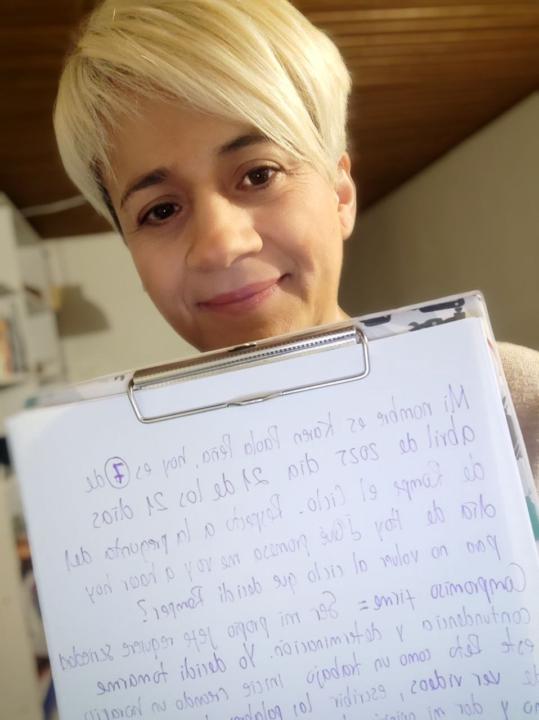 Mi nombre es Karen Paola Peña, hoy es 7 de
abril de 2025 día 21 de los 21 días
de Rompe el Ciclo. Respecto a la pregunta del
día de Hoy ¿Qué promesa me voy a hacer hoy
para no volver al ciclo que decidí Romper?
Compromiso = Ser mi propio jefe requiere seriedad
contundencia y determinación. Yo decidí tomarme
este Reto como un trabajo inicie creando un horario
de ver videos, escribir las palabras
y dar mi